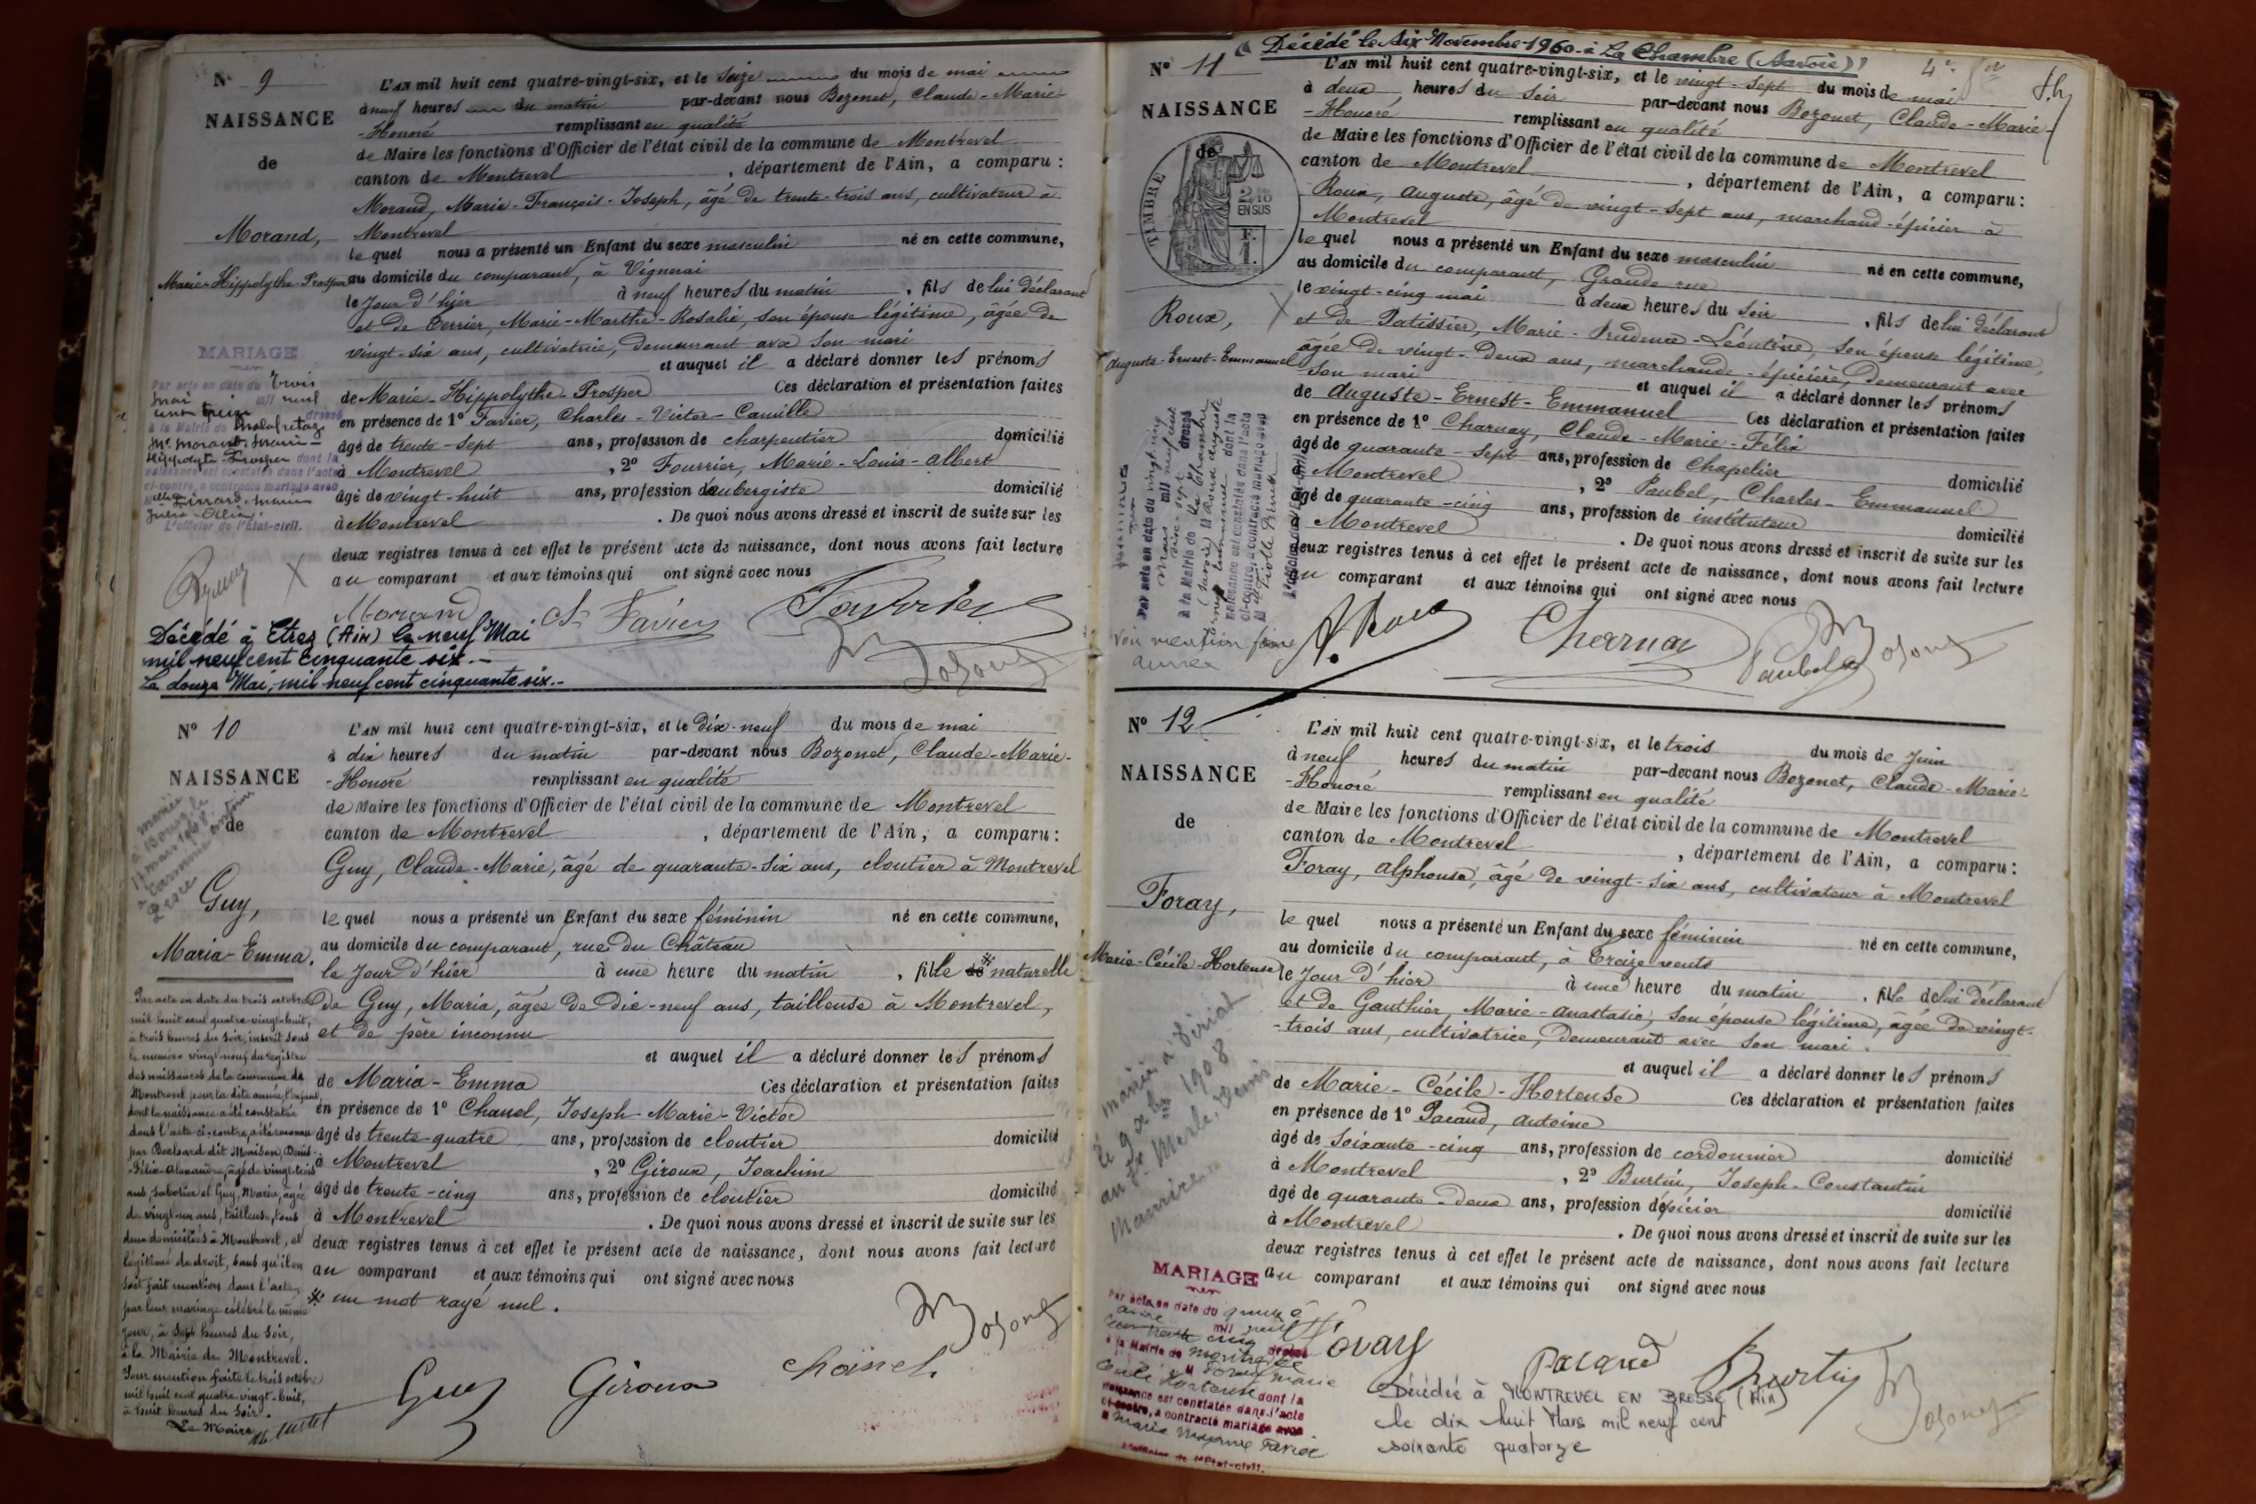 N° 9
NAISSANCE
de
Morand,
Marie-Hippolythe-Prosper
L'AN mil huit cent quatre-vingt-six, et le Seize du mois de mai
à neuf heures du matin par-devant nous Bozonet, Claude-Marie-
-Honoré remplissant en qualité
de Maire les fonctions d'Officier de l'état civil de la commune de Montrevel
canton de Montrevel, département de l'Ain, a comparu :
Morand, Marie-François-Joseph, âgé de trente-trois ans, cultivateur à
Montrevel
lequel nous a présenté un Enfant du sexe masculin né en cette commune,
au domicile du comparant, à Vignerai
le Jour d'hier à neuf heures du matin, fils de lui déclarant
et de Terrier, Marie-Marthe-Rosalie, son épouse légitime, âgée de
vingt-six ans, cultivatrice, demeurant avec son mari
et auquel il a déclaré donner les prénoms
de Marie-Hippolythe-Prosper Ces déclaration et présentation faites
en présence de 1° Favier, Charles-Victor-Camille
âgé de trente-sept ans, profession de charpentier domicilié
à Montrevel, 2° Fourrier, Marie-Louis-Albert
âgé de vingt-huit ans, profession d'aubergiste domicilié
à Montrevel. De quoi nous avons dressé et inscrit de suite sur les
deux registres tenus à cet effet le présent acte de naissance, dont nous avons fait lecture
au comparant et aux témoins qui ont signé avec nous
MARIAGE
Par acte en date du trois
mai mil neuf
cent treize dressé
à la Mairie de Malafretaz
Mr Morand Marie-
Hippolyte Prosper dont la
naissance est constatée dans l'acte
ci-contre, a contracté mariage avec
L'officier de l'État-civil.
Morand Ch Favier Fourrier
Bozonet
Décédé à Etrez (Ain) le neuf Mai
mil neuf cent cinquante six.-
Le douze Mai, mil neuf cent cinquante six.-
N° 10
NAISSANCE
de
Guy,
Maria-Emma.
L'AN mil huit cent quatre-vingt-six, et le Dix-neuf du mois de mai
à dix heures du matin par-devant nous Bozonet, Claude-Marie-
-Honoré remplissant en qualité
de Maire les fonctions d'Officier de l'état civil de la commune de Montrevel
canton de Montrevel, département de l'Ain, a comparu :
Guy, Claude-Marie, âgé de quarante-six ans, cloutier à Montrevel
lequel nous a présenté un Enfant du sexe féminin né en cette commune,
au domicile du comparant, rue du Château
le Jour d'hier à une heure du matin, fille de naturelle
de Guy, Maria, âgée de dix-neuf ans, tailleuse à Montrevel,
et de père inconnu
et auquel il a déclaré donner les prénoms
de Maria-Emma Ces déclaration et présentation faites
en présence de 1° Chanel, Joseph-Marie-Victor
âgé de trente-quatre ans, profession de cloutier domicilié
à Montrevel, 2° Giroux, Joachim
âgé de trente-cinq ans, profession de cloutier domicilié
à Montrevel. De quoi nous avons dressé et inscrit de suite sur les
deux registres tenus à cet effet le présent acte de naissance, dont nous avons fait lecture
au comparant et aux témoins qui ont signé avec nous
un mot rayé nul.
Par acte en date du trois octobre
mil huit cent quatre-vingt-huit,
à trois heures du soir, inscrit sous
le numéro vingt-neuf du registre
des naissances de la commune de
Montrevel pour la dite année, l'enfant
dont la naissance a été constatée
dans l'acte ci-contre, a été reconnu
par dit Maison, Denis
-Félix-Alexandre, âgé de vingt-trois
ans, sabotier et Guy, Maria, âgée
de vingt-un ans, tailleuse, tous
deux domiciliés à Montrevel, et
légitimé de droit, sans qu'il en
soit fait mention dans l'acte,
par leur mariage célébré le même
jour, à sept heures du soir,
à la Mairie de Montrevel.
Pour mention faite le trois octobre
mil huit cent quatre-vingt-huit,
à huit heures du soir.
Le Maire
Guy Giroux Chanel Bozonet
Décédé le six Novembre 1960 à La Chambre (Savoie)
N° 11
NAISSANCE
de
TIMBRE
2 10
EN SUS
F.
1.
Roux,
Auguste-Ernest-Emmanuel
L'AN mil huit cent quatre-vingt-six, et le vingt-sept du mois de mai
à deux heures du soir par-devant nous Bozonet, Claude-Marie-
-Honoré remplissant en qualité
de Maire les fonctions d'Officier de l'état civil de la commune de Montrevel
canton de Montrevel, département de l'Ain, a comparu :
Roux, Auguste, âgé de vingt-sept ans, marchand-épicier à
Montrevel
lequel nous a présenté un Enfant du sexe masculin né en cette commune,
au domicile du comparant, Grande rue
le vingt-cinq mai à deux heures du soir, fils de lui déclarant
et de Patissier, Marie-Prudence-Léontine, son épouse légitime,
âgée de vingt-deux ans, marchande-épicière, demeurant avec
son mari et auquel il a déclaré donner les prénoms
de Auguste-Ernest-Emmanuel Ces déclaration et présentation faites
en présence de 1° Charnay, Claude-Marie-Félix
âgé de quarante-sept ans, profession de chapelier domicilié
à Montrevel, 2° Paubel, Charles-Emmanuel
âgé de quarante-cinq ans, profession de instituteur domicilié
à Montrevel. De quoi nous avons dressé et inscrit de suite sur les
deux registres tenus à cet effet le présent acte de naissance, dont nous avons fait lecture
au comparant et aux témoins qui ont signé avec nous
A. Roux Charnay Paubel Bozonet
N° 12
NAISSANCE
de
Foray,
Marie-Cécile-Hortense
L'AN mil huit cent quatre-vingt-six, et le trois du mois de Juin
à neuf heures du matin par-devant nous Bozonet, Claude-Marie-
-Honoré remplissant en qualité
de Maire les fonctions d'Officier de l'état civil de la commune de Montrevel
canton de Montrevel, département de l'Ain, a comparu :
Foray, Alphonse, âgé de vingt-six ans, cultivateur à Montrevel
lequel nous a présenté un Enfant du sexe féminin né en cette commune,
au domicile du comparant, à Treize vents
le Jour d'hier à une heure du matin, fille de lui déclarant
et de Gauthier, Marie-Anastasie, son épouse légitime, âgée de vingt-
-trois ans, cultivatrice, demeurant avec son mari.
et auquel il a déclaré donner les prénoms
de Marie-Cécile-Hortense Ces déclaration et présentation faites
en présence de 1° Pacaud, Antoine
âgé de soixante-cinq ans, profession de cordonnier domicilié
à Montrevel, 2° Burtin, Joseph-Constantin
âgé de quarante-deux ans, profession d'épicier domicilié
à Montrevel. De quoi nous avons dressé et inscrit de suite sur les
deux registres tenus à cet effet le présent acte de naissance, dont nous avons fait lecture
au comparant et aux témoins qui ont signé avec nous
marié à Viriat
le 9 xbre 1908
MARIAGE
Par acte en date du
à la Mairie de Montrevel
Foray Marie
Cécile Hortense dont la
naissance est constatée dans l'acte
ci-contre, a contracté mariage avec
Foray Pacaud Burtin Bozonet
Décédée à MONTREVEL EN BRESSE (Ain)
le dix huit Mars mil neuf cent
soixante quatorze